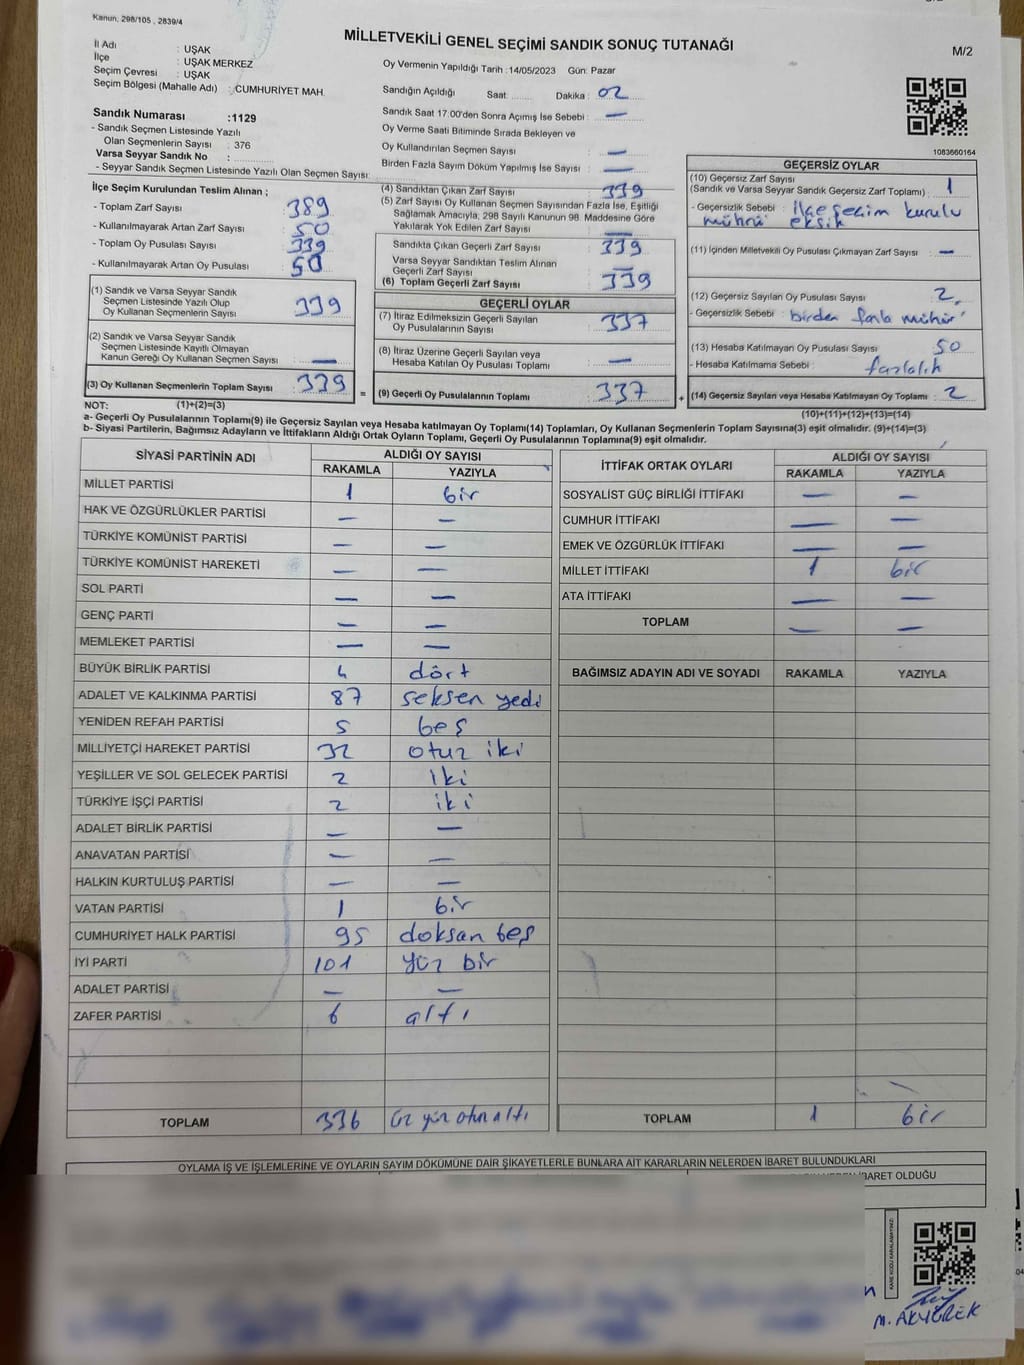 Kanun, 298/105 , 2839/4
MİLLETVEKİLİ GENEL SEÇİMİ SANDIK SONUÇ TUTANAĞI
M/2
İl Adı : UŞAK
İlçe : UŞAK MERKEZ
Seçim Çevresi : UŞAK
Seçim Bölgesi (Mahalle Adı) : CUMHURİYET MAH.
Sandık Numarası :1129
- Sandık Seçmen Listesinde Yazılı
Olan Seçmenlerin Sayısı : 376
Varsa Seyyar Sandık No :
- Seyyar Sandık Seçmen Listesinde Yazılı Olan Seçmen Sayısı:
Oy Vermenin Yapıldığı Tarih :14/05/2023 Gün: Pazar
Sandığın Açıldığı Saat: Dakika : 02
Sandık Saat 17:00'den Sonra Açımış İse Sebebi : —
Oy Verme Saati Bitiminde Sırada Bekleyen ve
Oy Kullandırılan Seçmen Sayısı : —
Birden Fazla Sayım Döküm Yapılmış İse Sayısı : —
1083660164
İlçe Seçim Kurulundan Teslim Alınan ;
- Toplam Zarf Sayısı : 389
- Kullanılmayarak Artan Zarf Sayısı : 50
- Toplam Oy Pusulası Sayısı : 339
- Kullanılmayarak Artan Oy Pusulası : 50
(1) Sandık ve Varsa Seyyar Sandık
Seçmen Listesinde Yazılı Olup
Oy Kullanan Seçmenlerin Sayısı : 339
(2) Sandık ve Varsa Seyyar Sandık
Seçmen Listesinde Kayıtlı Olmayan
Kanun Gereği Oy Kullanan Seçmen Sayısı : —
(3) Oy Kullanan Seçmenlerin Toplam Sayısı : 339
(4) Sandıktan Çıkan Zarf Sayısı : 339
(5) Zarf Sayısı Oy Kullanan Seçmen Sayısından Fazla İse, Eşitliği
Sağlamak Amacıyla, 298 Sayılı Kanunun 98. Maddesine Göre
Yakılarak Yok Edilen Zarf Sayısı : —
Sandıkta Çıkan Geçerli Zarf Sayısı : 339
Varsa Seyyar Sandıktan Teslim Alınan
Geçerli Zarf Sayısı : —
(6) Toplam Geçerli Zarf Sayısı : 339
GEÇERLİ OYLAR
(7) İtiraz Edilmeksizin Geçerli Sayılan
Oy Pusulalarının Sayısı : 337
(8) İtiraz Üzerine Geçerli Sayılan veya
Hesaba Katılan Oy Pusulası Toplamı : —
= (9) Geçerli Oy Pusulalarının Toplamı : 337
GEÇERSİZ OYLAR
(10) Geçersiz Zarf Sayısı
(Sandık ve Varsa Seyyar Sandık Geçersiz Zarf Toplamı) : 1
- Geçersizlik Sebebi : ilçe seçim kurulu
mührü eksik
(11) İçinden Milletvekili Oy Pusulası Çıkmayan Zarf Sayısı : —
(12) Geçersiz Sayılan Oy Pusulası Sayısı : 2
- Geçersizlik Sebebi : birden fazla mühür
(13) Hesaba Katılmayan Oy Pusulası Sayısı : 50
- Hesaba Katılmama Sebebi : fazlalık
+ (14) Geçersiz Sayılan veya Hesaba Katılmayan Oy Toplamı : 2
NOT: (1)+(2)=(3)
(10)+(11)+(12)+(13)=(14)
a- Geçerli Oy Pusulalarının Toplamı(9) ile Geçersiz Sayılan veya Hesaba katılmayan Oy Toplamı(14) Toplamları, Oy Kullanan Seçmenlerin Toplam Sayısına(3) eşit olmalıdır. (9)+(14)=(3)
b- Siyasi Partilerin, Bağımsız Adayların ve İttifakların Aldığı Ortak Oyların Toplamı, Geçerli Oy Pusulalarının Toplamına(9) eşit olmalıdır.
SİYASİ PARTİNİN ADI ALDIĞI OY SAYISI
RAKAMLA YAZIYLA
MİLLET PARTİSİ 1 bir
HAK VE ÖZGÜRLÜKLER PARTİSİ — —
TÜRKİYE KOMÜNİST PARTİSİ — —
TÜRKİYE KOMÜNİST HAREKETİ — —
SOL PARTİ — —
GENÇ PARTİ — —
MEMLEKET PARTİSİ — —
BÜYÜK BİRLİK PARTİSİ 4 dört
ADALET VE KALKINMA PARTİSİ 87 seksen yedi
YENİDEN REFAH PARTİSİ 5 beş
MİLLİYETÇİ HAREKET PARTİSİ 32 otuz iki
YEŞİLLER VE SOL GELECEK PARTİSİ 2 iki
TÜRKİYE İŞÇİ PARTİSİ 2 iki
ADALET BİRLİK PARTİSİ — —
ANAVATAN PARTİSİ — —
HALKIN KURTULUŞ PARTİSİ — —
VATAN PARTİSİ 1 bir
CUMHURİYET HALK PARTİSİ 95 doksan beş
İYİ PARTİ 101 yüz bir
ADALET PARTİSİ — —
ZAFER PARTİSİ 6 altı
TOPLAM 336 üç yüz otuz altı
İTTİFAK ORTAK OYLARI ALDIĞI OY SAYISI
RAKAMLA YAZIYLA
SOSYALİST GÜÇ BİRLİĞİ İTTİFAKI — —
CUMHUR İTTİFAKI — —
EMEK VE ÖZGÜRLÜK İTTİFAKI — —
MİLLET İTTİFAKI 1 bir
ATA İTTİFAKI — —
TOPLAM — —
BAĞIMSIZ ADAYIN ADI VE SOYADI RAKAMLA YAZIYLA
TOPLAM 1 bir
OYLAMA İŞ VE İŞLEMLERİNE VE OYLARIN SAYIM DÖKÜMÜNE DAİR ŞİKAYETLERLE BUNLARA AİT KARARLARIN NELERDEN İBARET BULUNDUKLARI
İBARET OLDUĞU
KARE KODU KARALAMAYINIZ!
M. AKYÜREK